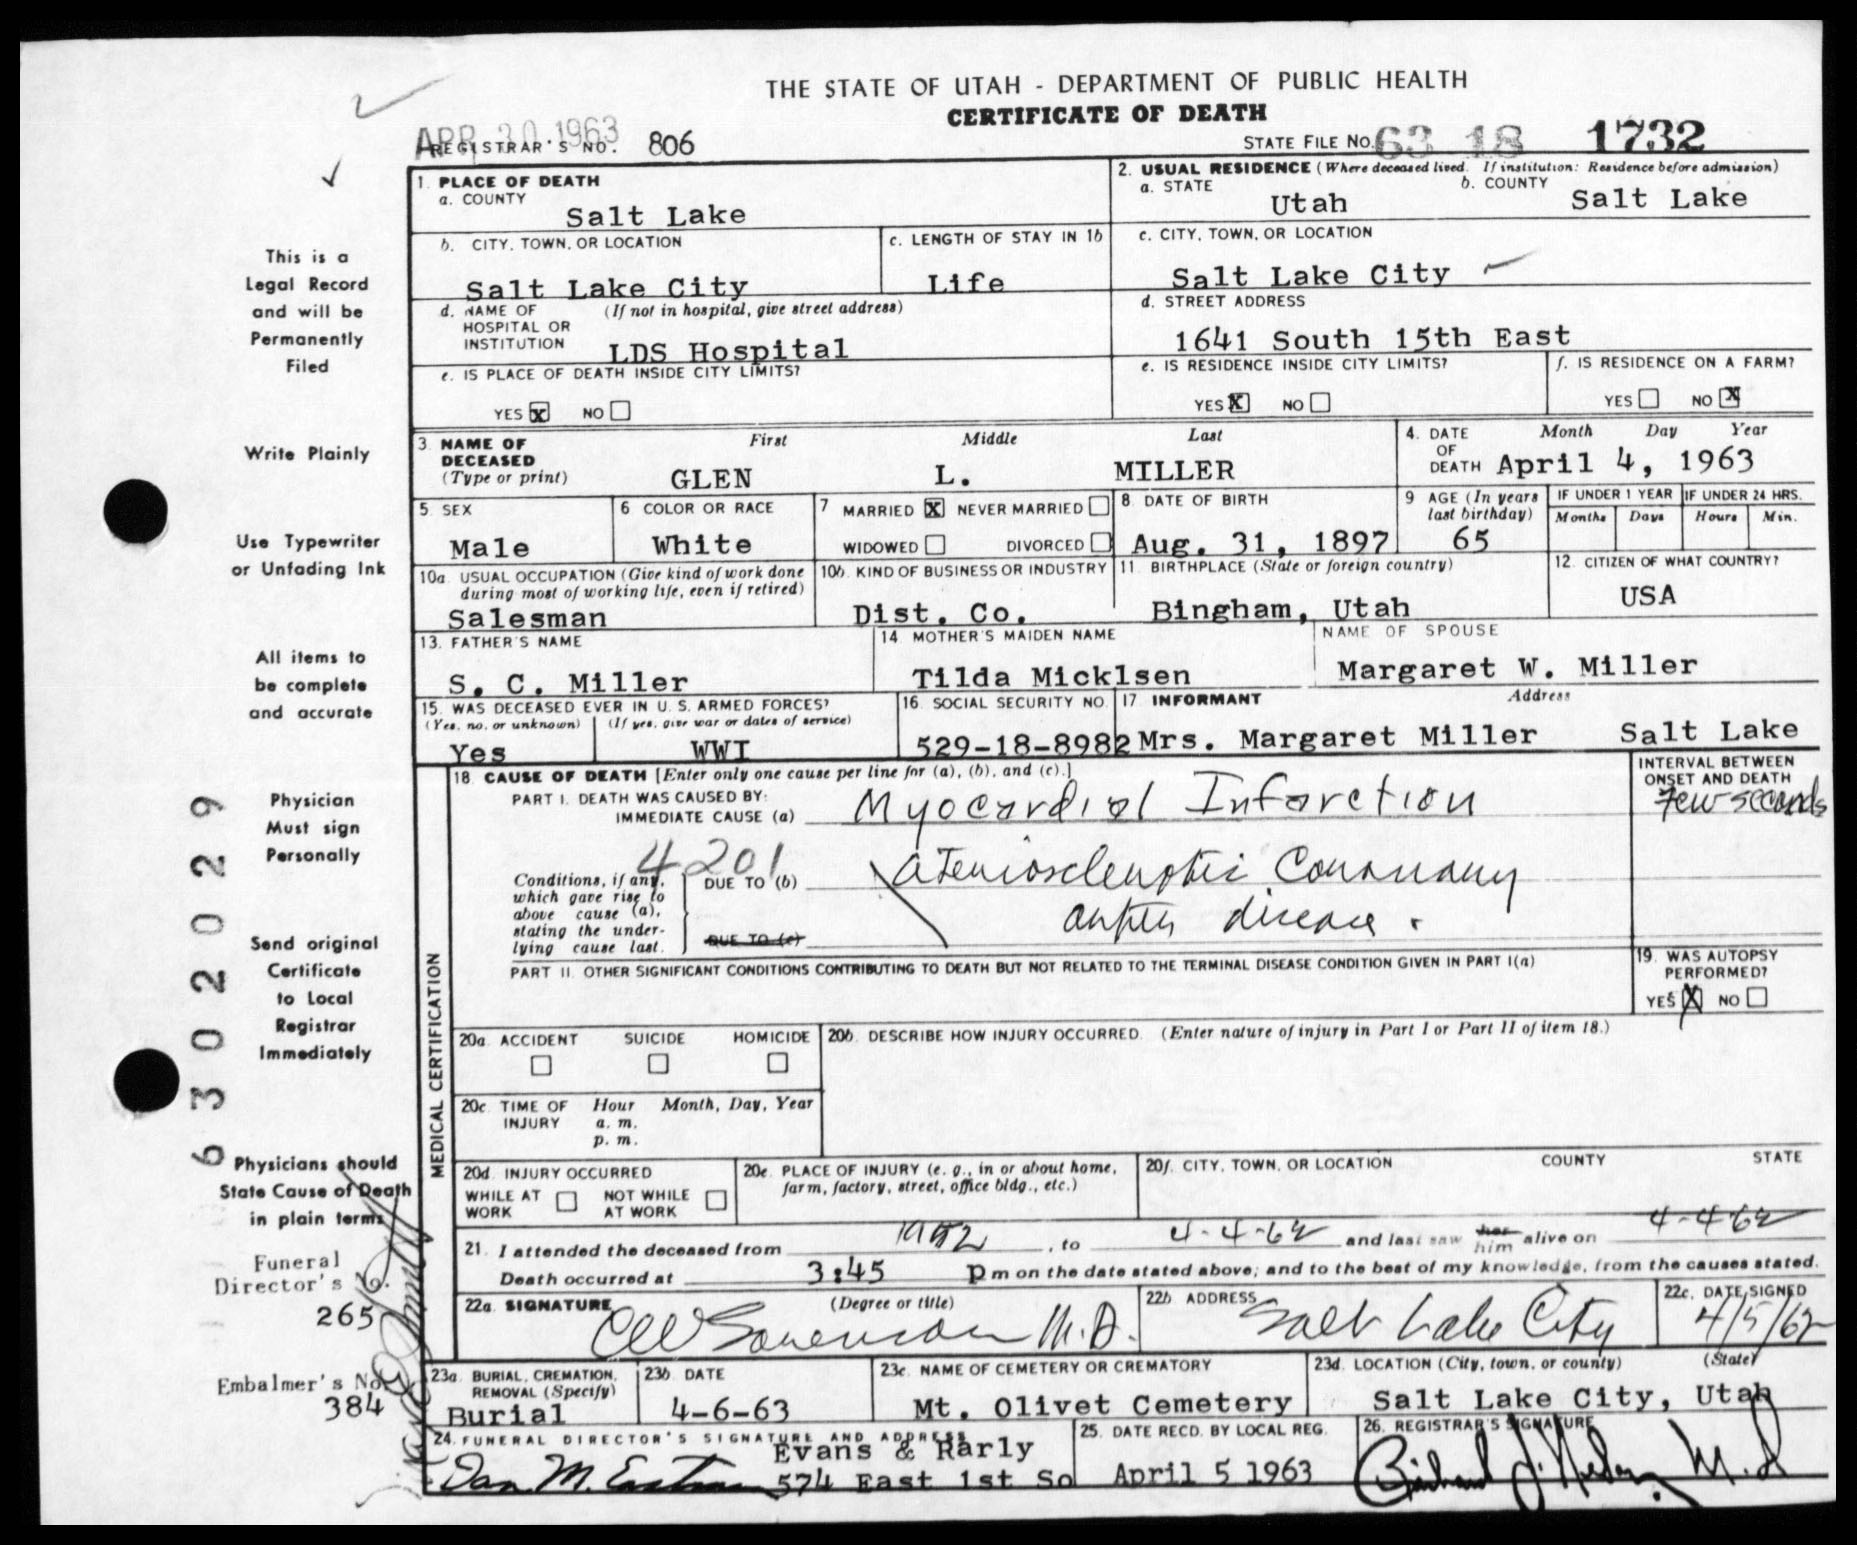 THE STATE OF UTAH - DEPARTMENT OF PUBLIC HEALTH
CERTIFICATE OF DEATH
APR 30 1963
REGISTRAR'S NO. 806
STATE FILE NO. 63 18 1732
This is a
Legal Record
and will be
Permanently
Filed
Write Plainly
Use Typewriter
or Unfading Ink
All items to
be complete
and accurate
Physician
Must sign
Personally
Send original
Certificate
to Local
Registrar
Immediately
Physicians should
State Cause of Death
in plain terms
Funeral
Director's No.
265
Embalmer's No.
384
6302029
1. PLACE OF DEATH
a. COUNTY
Salt Lake
2. USUAL RESIDENCE (Where deceased lived. If institution: Residence before admission)
a. STATE
Utah
b. COUNTY
Salt Lake
b. CITY, TOWN, OR LOCATION
Salt Lake City
c. LENGTH OF STAY IN 1b
Life
c. CITY, TOWN, OR LOCATION
Salt Lake City
d. NAME OF HOSPITAL OR INSTITUTION (If not in hospital, give street address)
LDS Hospital
d. STREET ADDRESS
1641 South 15th East
e. IS PLACE OF DEATH INSIDE CITY LIMITS?
YES X NO
e. IS RESIDENCE INSIDE CITY LIMITS?
YES X NO
f. IS RESIDENCE ON A FARM?
YES NO X
3. NAME OF DECEASED (Type or print)
First Middle Last
GLEN L. MILLER
4. DATE OF DEATH
Month Day Year
April 4, 1963
5. SEX
Male
6 COLOR OR RACE
White
7 MARRIED X NEVER MARRIED
WIDOWED DIVORCED
8 DATE OF BIRTH
Aug. 31, 1897
9 AGE (In years last birthday)
65
IF UNDER 1 YEAR
Months Days
IF UNDER 24 HRS.
Hours Min.
10a. USUAL OCCUPATION (Give kind of work done during most of working life, even if retired)
Salesman
10b. KIND OF BUSINESS OR INDUSTRY
Dist. Co.
11. BIRTHPLACE (State or foreign country)
Bingham, Utah
12. CITIZEN OF WHAT COUNTRY?
USA
13. FATHER'S NAME
S. C. Miller
14 MOTHER'S MAIDEN NAME
Tilda Micklsen
NAME OF SPOUSE
Margaret W. Miller
15. WAS DECEASED EVER IN U. S. ARMED FORCES?
(Yes, no, or unknown) (If yes, give war or dates of service)
Yes WWI
16. SOCIAL SECURITY NO.
529-18-8982
17 INFORMANT Address
Mrs. Margaret Miller Salt Lake
MEDICAL CERTIFICATION
18. CAUSE OF DEATH [Enter only one cause per line for (a), (b), and (c).]
PART I. DEATH WAS CAUSED BY:
IMMEDIATE CAUSE (a) Myocardial Infarction
INTERVAL BETWEEN ONSET AND DEATH
Few seconds
4201
Conditions, if any, which gave rise to above cause (a), stating the underlying cause last.
DUE TO (b) Arteriosclerotic Coronary
artery disease.
DUE TO (c)
PART II. OTHER SIGNIFICANT CONDITIONS CONTRIBUTING TO DEATH BUT NOT RELATED TO THE TERMINAL DISEASE CONDITION GIVEN IN PART I(a)
19. WAS AUTOPSY PERFORMED?
YES X NO
20a. ACCIDENT SUICIDE HOMICIDE
20b. DESCRIBE HOW INJURY OCCURRED. (Enter nature of injury in Part I or Part II of item 18.)
20c. TIME OF INJURY Hour Month, Day, Year
a. m.
p. m.
20d. INJURY OCCURRED
WHILE AT WORK NOT WHILE AT WORK
20e. PLACE OF INJURY (e. g., in or about home, farm, factory, street, office bldg., etc.)
20f. CITY, TOWN, OR LOCATION COUNTY STATE
21. I attended the deceased from 1952, to 4-4-62 and last saw her him alive on 4-4-62
Death occurred at 3:45 Pm on the date stated above; and to the best of my knowledge, from the causes stated.
22a. SIGNATURE (Degree or title)
CW Sorenson M.D.
22b ADDRESS
Salt Lake City
22c. DATE SIGNED
4/5/62
23a. BURIAL, CREMATION, REMOVAL (Specify)
Burial
23b. DATE
4-6-63
23c. NAME OF CEMETERY OR CREMATORY
Mt. Olivet Cemetery
23d. LOCATION (City, town, or county) (State)
Salt Lake City, Utah
24. FUNERAL DIRECTOR'S SIGNATURE AND ADDRESS
Evans & Rarly
Dan M. Eastman 574 East 1st So
25. DATE RECD. BY LOCAL REG.
April 5 1963
26. REGISTRAR'S SIGNATURE
Richard M.D